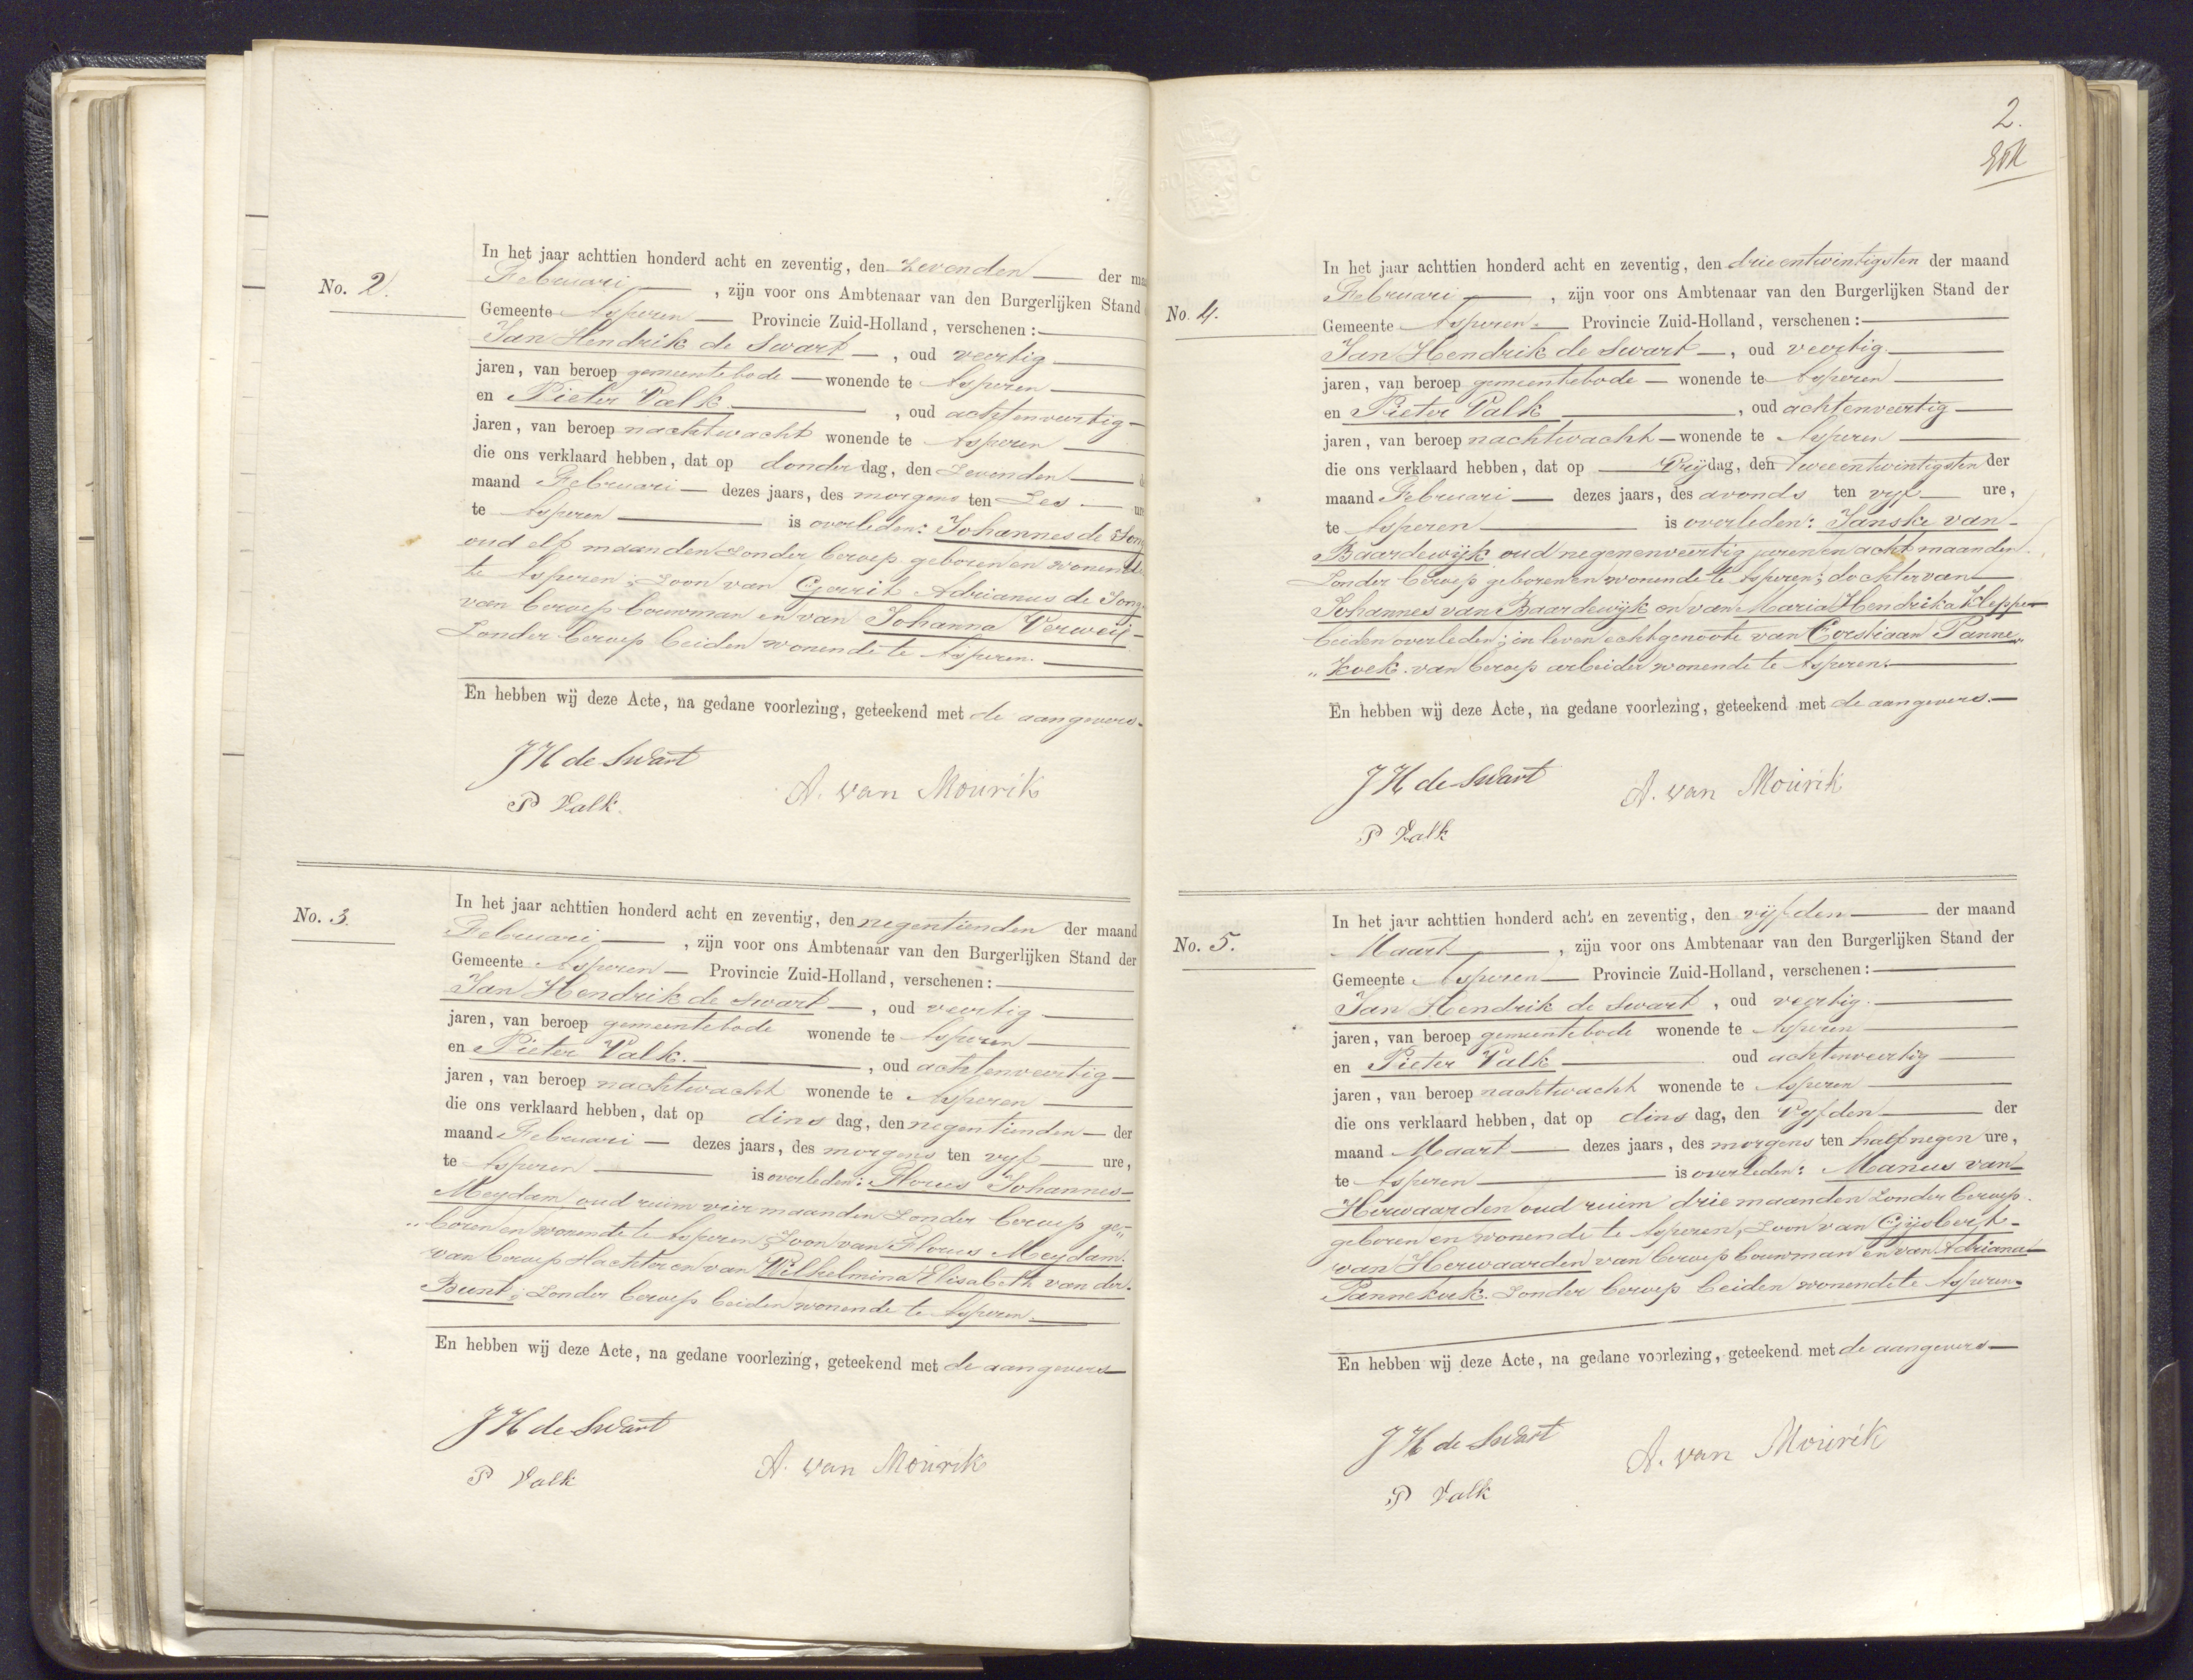 No. 2.
In het jaar achttien honderd acht en zeventig, den zevenden der maa
Februari, zijn voor ons Ambtenaar van den Burgerlijken Stand
Gemeente Asperen Provincie Zuid-Holland, verschenen:
Jan Hendrik de Swart, oud veertig
jaren, van beroep gemeentebode wonende te Asperen
en Pieter Valk, oud achtenveertig
jaren, van beroep nachtwacht wonende te Asperen
die ons verklaard hebben, dat op donderdag, den zevenden d
maand Februari dezes jaars, des morgens ten zes ur
te Asperen is overleden: Johannes de Jong
oud elf maanden zonder beroep geboren en wonende
te Asperen; zoon van Gerrit Adrianus de Jong
van beroep bouwman en van Johanna Verweij
zonder beroep beiden wonende te Asperen.
En hebben wij deze Acte, na gedane voorlezing, geteekend met de aangevers.
JH de Swart
A. van Mourik
P Valk.
No. 3.
In het jaar achttien honderd acht en zeventig, den negentienden der maand
Februari, zijn voor ons Ambtenaar van den Burgerlijken Stand der
Gemeente Asperen Provincie Zuid-Holland, verschenen:
Jan Hendrik de Swart, oud veertig
jaren, van beroep gemeentebode wonende te Asperen
en Pieter Valk., oud achtenveertig
jaren, van beroep nachtwacht wonende te Asperen
die ons verklaard hebben, dat op dinsdag, den negentienden der
maand Februari dezes jaars, des morgens ten vijf ure,
te Asperen is overleden: Florus Johannes
Meydam oud ruim vier maanden zonder beroep ge-
"boren en wonende te Asperen; zoon van Florus Meydam.
van beroep slachter en van Wilhelmina Elisabeth van der
Bunt; zonder beroep beiden wonende te Asperen.
En hebben wij deze Acte, na gedane voorlezing, geteekend met de aangevers
JH de Swart
A. van Mourik
P Valk
2.
No. 4.
In het jaar achttien honderd acht en zeventig, den drieentwintigsten der maand
Februari, zijn voor ons Ambtenaar van den Burgerlijken Stand der
Gemeente Asperen Provincie Zuid-Holland, verschenen:
Jan Hendrik de Swart, oud veertig
jaren, van beroep gemeentebode wonende te Asperen
en Pieter Valk, oud achtenveertig
jaren, van beroep nachtwacht wonende te Asperen
die ons verklaard hebben, dat op Vrijdag, den tweeentwintigsten der
maand Februari dezes jaars, des avonds ten vijf ure,
te Asperen is overleden: Janske van
Baardewijk oud negenenveertig jaren en acht maanden.
zonder beroep geboren en wonende te Asperen; dochter van
Johannes van Baardewijk en van Maria Hendrika Kleppe
beiden overleden; in leven echtgenoote van Corstiaan Panne"
"koek. van beroep arbeider wonende te Asperen.
En hebben wij deze Acte, na gedane voorlezing, geteekend met de aangevers.
JH de Swart
A. van Mourik
P Valk
No. 5.
In het jaar achttien honderd acht en zeventig, den vijfden der maand
Maart, zijn voor ons Ambtenaar van den Burgerlijken Stand der
Gemeente Asperen Provincie Zuid-Holland, verschenen:
Jan Hendrik de Swart, oud veertig
jaren, van beroep gemeentebode wonende te Asperen
en Pieter Valk oud achtenveertig
jaren, van beroep nachtwacht wonende te Asperen
die ons verklaard hebben, dat op dinsdag, den Vijfden der
maand Maart dezes jaars, des morgens ten half negen ure,
te Asperen is overleden: Manus van
Herwaarden oud ruim drie maanden zonder beroep.
geboren en wonende te Asperen; zoon van Gijsbert
van Herwaarden van beroep bouwman en van Adriana
Pannekoek. zonder beroep beiden wonende te Asperen.
En hebben wij deze Acte, na gedane voorlezing, geteekend met de aangevers
JH de Swart
A. van Mourik
P Valk